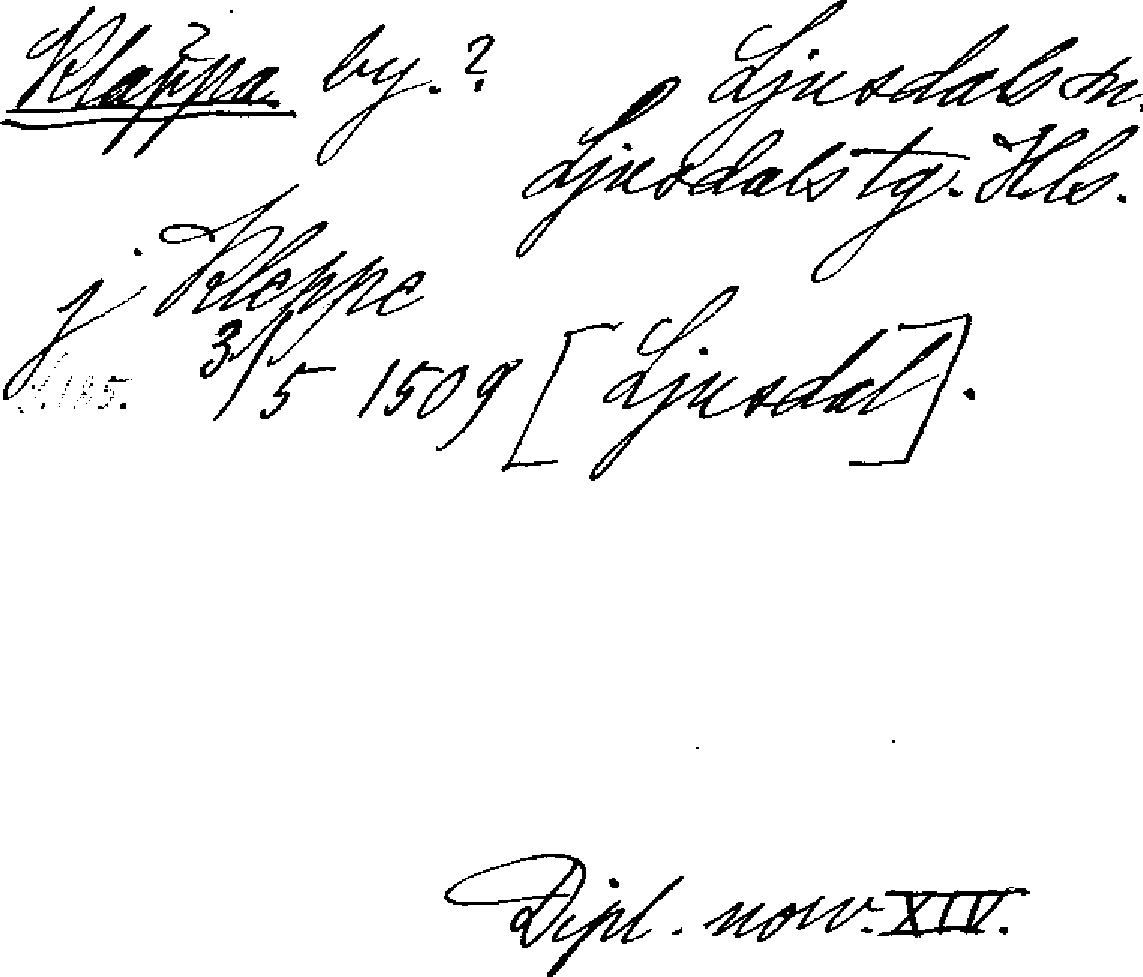 Kläppa by. ? Ljusdals sn.
Ljusdals tg. Hls.
j Kleppe
3/5 1509 [Ljusdal].
Dipl. norv. XIV.